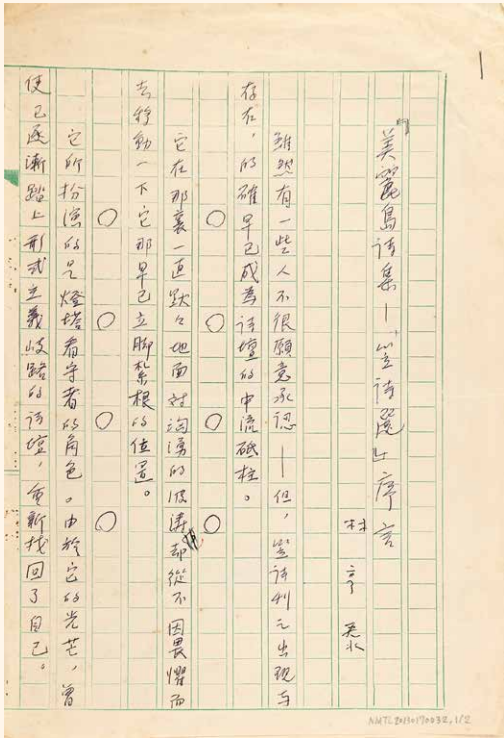 「美麗島詩集—「笠詩選」序言
林亨泰
雖然有一些人不很願意承認——但，笠詩刊之出現与
存在，的確早已成為詩壇的中流砥柱。
○ ○ ○ ○
它在那裏一直默々地面对洶湧的波濤，却從不因畏懼而
去移動一下它那早已立脚紮根的位置。
○ ○ ○ ○
它所扮演的是燈塔看守者的角色。由於它的光芒，曾
使已逐漸踏上形式主義歧路的詩壇，重新找回了自己。
NMTL20130170032,1/2